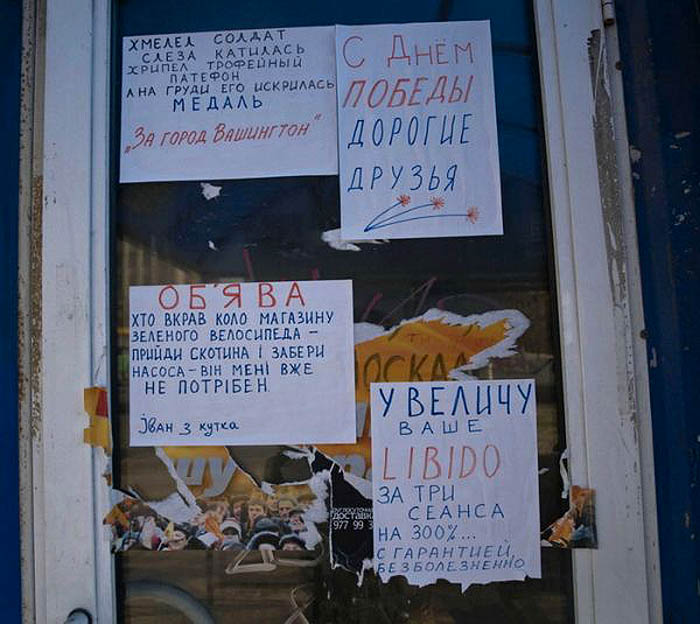 ХМЕЛЕЛ СОЛДАТ
СЛЕЗА КАТИЛАСЬ
ХРИПЕЛ ТРОФЕЙНЫЙ
ПАТЕФОН
А НА ГРУДИ ЕГО ИСКРИЛАСЬ
МЕДАЛЬ
„ЗА ГОРОД ВАШИНГТОН"
С ДНЁМ
ПОБЕДЫ
ДОРОГИЕ
ДРУЗЬЯ
ОБ'ЯВА
ХТО ВКРАВ КОЛО МАГАЗИНУ
ЗЕЛЕНОГО ВЕЛОСИПЕДА –
ПРИЙДИ СКОТИНА І ЗАБЕРИ
НАСОСА – ВІН МЕНІ ВЖЕ
НЕ ПОТРІБЕН
Іван з кутка
УВЕЛИЧУ
ВАШЕ
LIBIDO
ЗА ТРИ
СЕАНСА
НА 300%...
С ГАРАНТИЕЙ,
БЕЗБОЛЕЗНЕННО
доставка
977 99 3